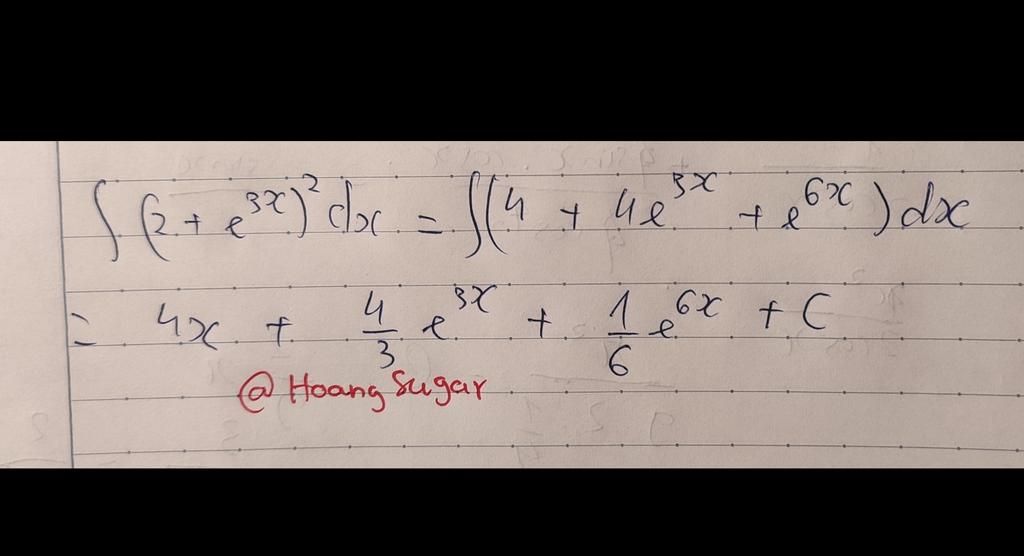 ∫(2 + e^{3x})² dx = ∫(4 + 4e^{3x} + e^{6x}) dx
= 4x + \frac{4}{3} e^{3x} + \frac{1}{6} e^{6x} + C
@ Hoang Sugar